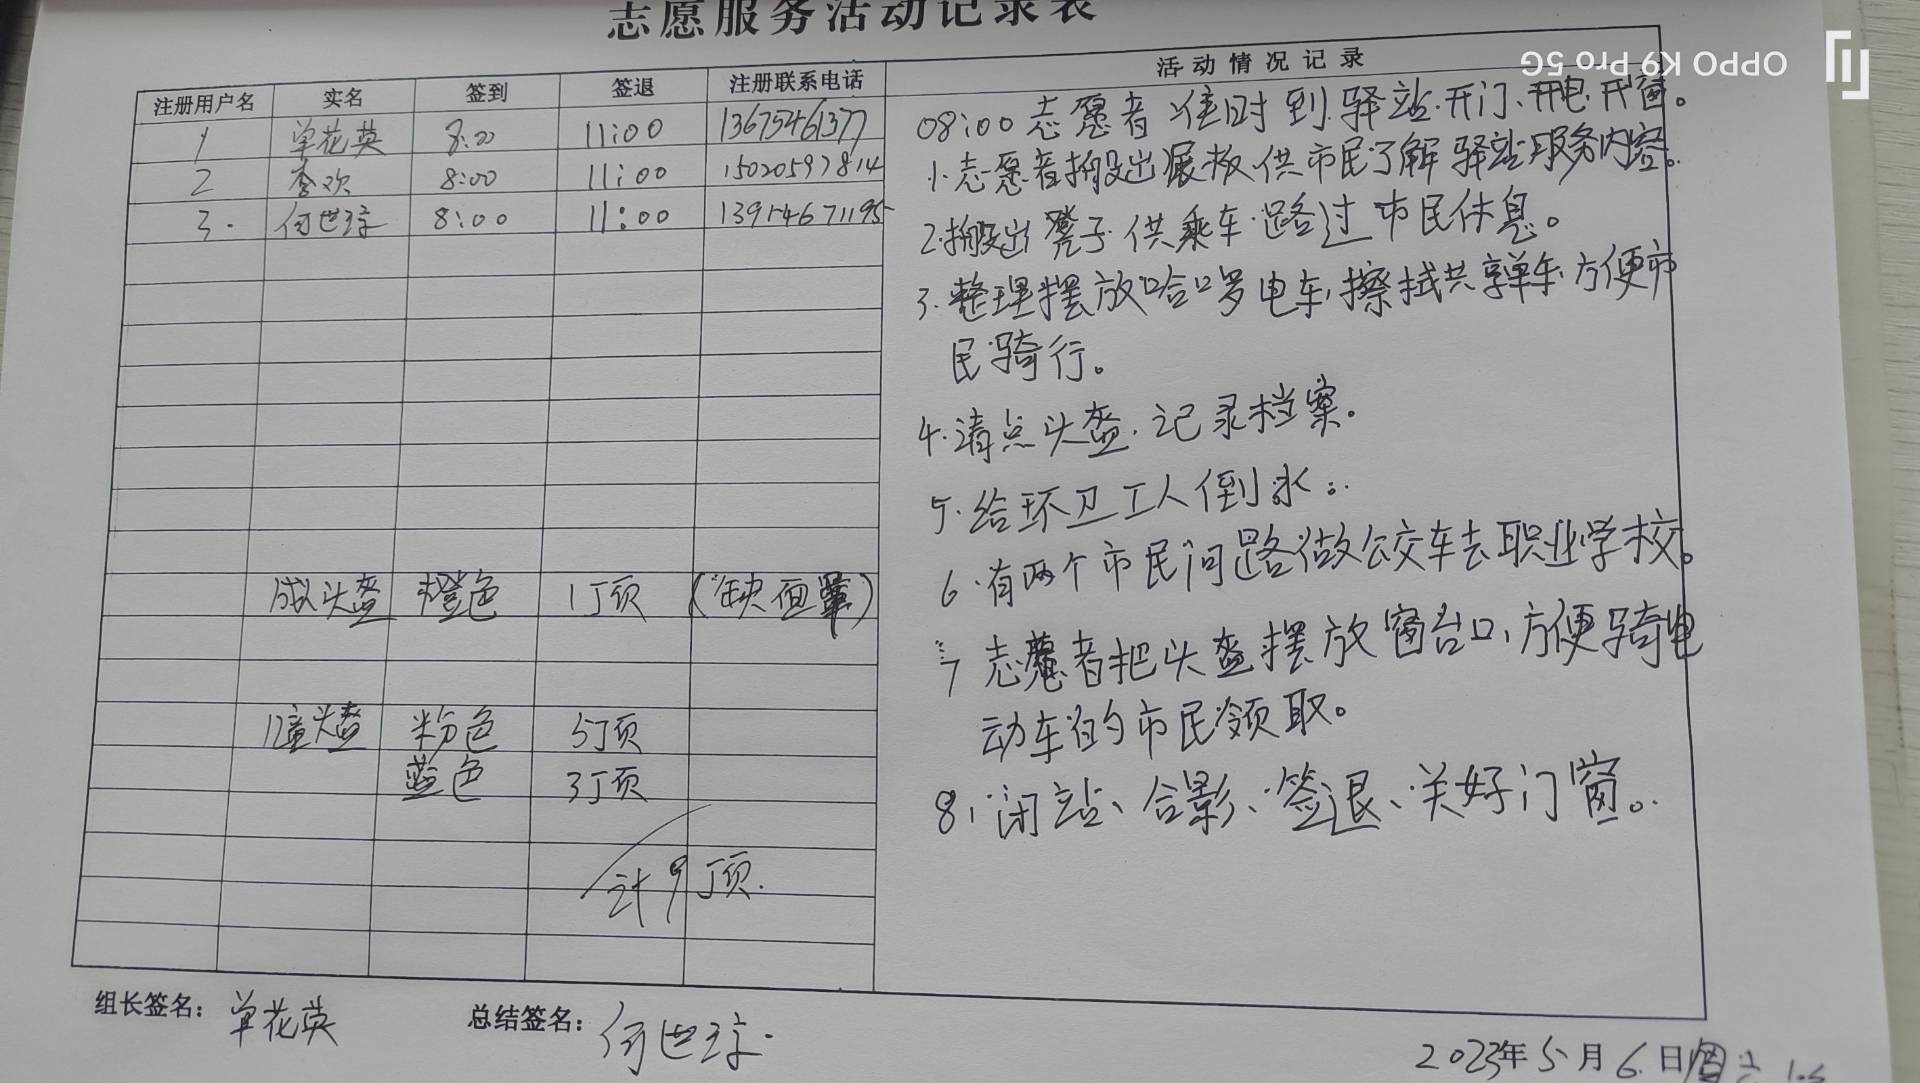 志愿服务活动记录表
OPPO K9 Pro 5G
注册用户名 实名 签到 签退 注册联系电话 活动情况记录
1 单花英 8:00 11:00 13675461377
2 李欢 8:00 11:00 15020597814
3. 何世 8:00 11:00
08:00志愿者准时到驿站.开门、开电、开窗。
1.志愿者搬出展板供市民了解驿站服务内容。
2.搬出凳子供乘车路过市民休息。
3.整理摆放哈啰电车,擦拭共享单车,方便市
民骑行。
4.清点头盔.记录档案。
5.给环卫工人倒水。
6.有两个市民问路做公交车去职业学校。
7志愿者把头盔摆放窗台口,方便骑电
动车的市民领取。
8、闭站、合影、签退、关好门窗。
成人头盔 橙色 1顶 (缺面罩)
儿童头盔 粉色 5顶
蓝色 3顶
计9顶.
组长签名: 单花英 总结签名: 何世
2023年5月6日 周六